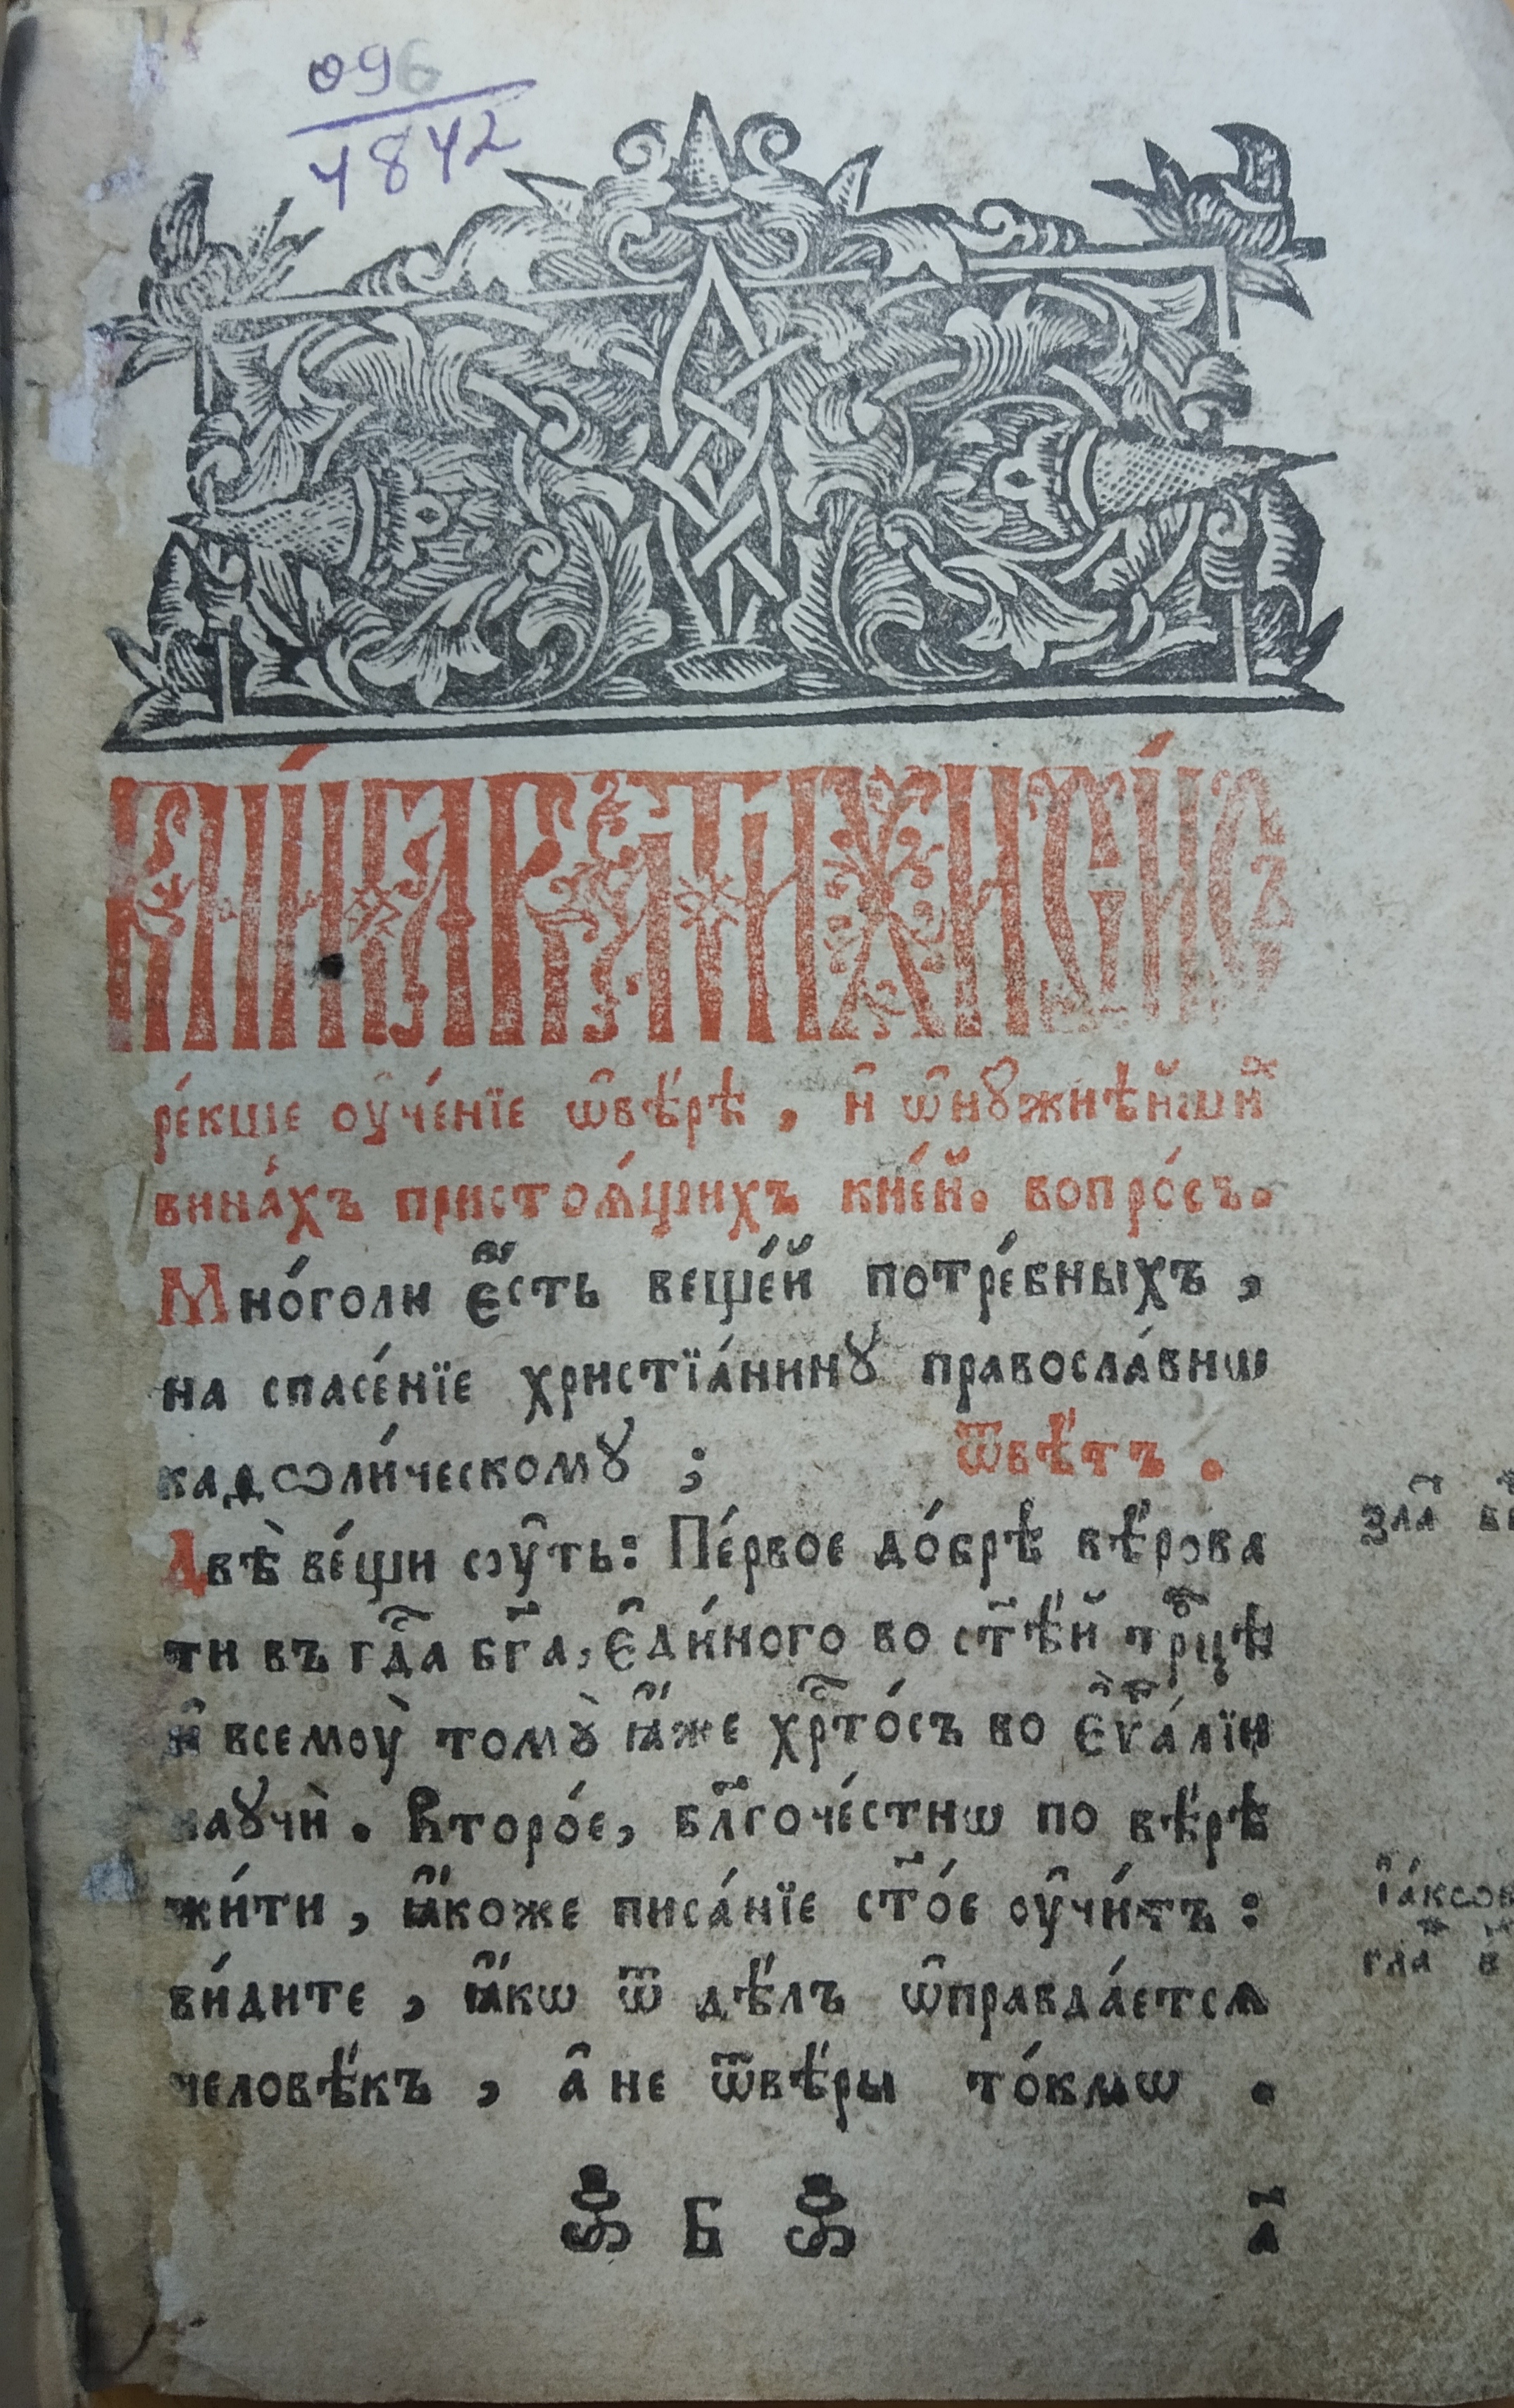 096
4842
КНИ́ГА КАТИХИСІ́СЪ
ре́кше ᲂу҆че́нїе ѡ҆вѣ́рѣ , и҆ ѡ҆нꙋжнѣ́йши̑х
вина́хъ пристоѧ́щихъ кне́й. вопро́съ.
Мно́голи є҆́сть веще́й потре́бныхъ ,
на спасе́нїе христїа́нинꙋ правосла́внѡ
каѳѡли́ческомꙋ ; Ѿвѣ́тъ .
Двѣ̀ ве́щи сꙋ҆ть: Пе́рвое до́брѣ вѣ́рова
ти въ гдⷭ҇а бг҃а, є҆ди́ного во ст҃ѣ́й трⷪ҇цѣ
и҆ всемоу̀ томꙋ̀ ꙗ҆́же хрⷭ҇то́съ во є҆ѵⷢ҇а́лїи
наꙋчѝ . Второ́е, бл҃гоче́стнѡ по вѣ́рѣ
жи́ти , ꙗ҆́коже писа́нїе ст҃о́е ᲂу҆чи́тъ :
ви́дите , ꙗ҆́кѡ ѿ дѣ́лъ ѡ҆правда́етсѧ
человѣ́къ , а҆ не ѿвѣ́ры то́кмѡ .
Б а҃